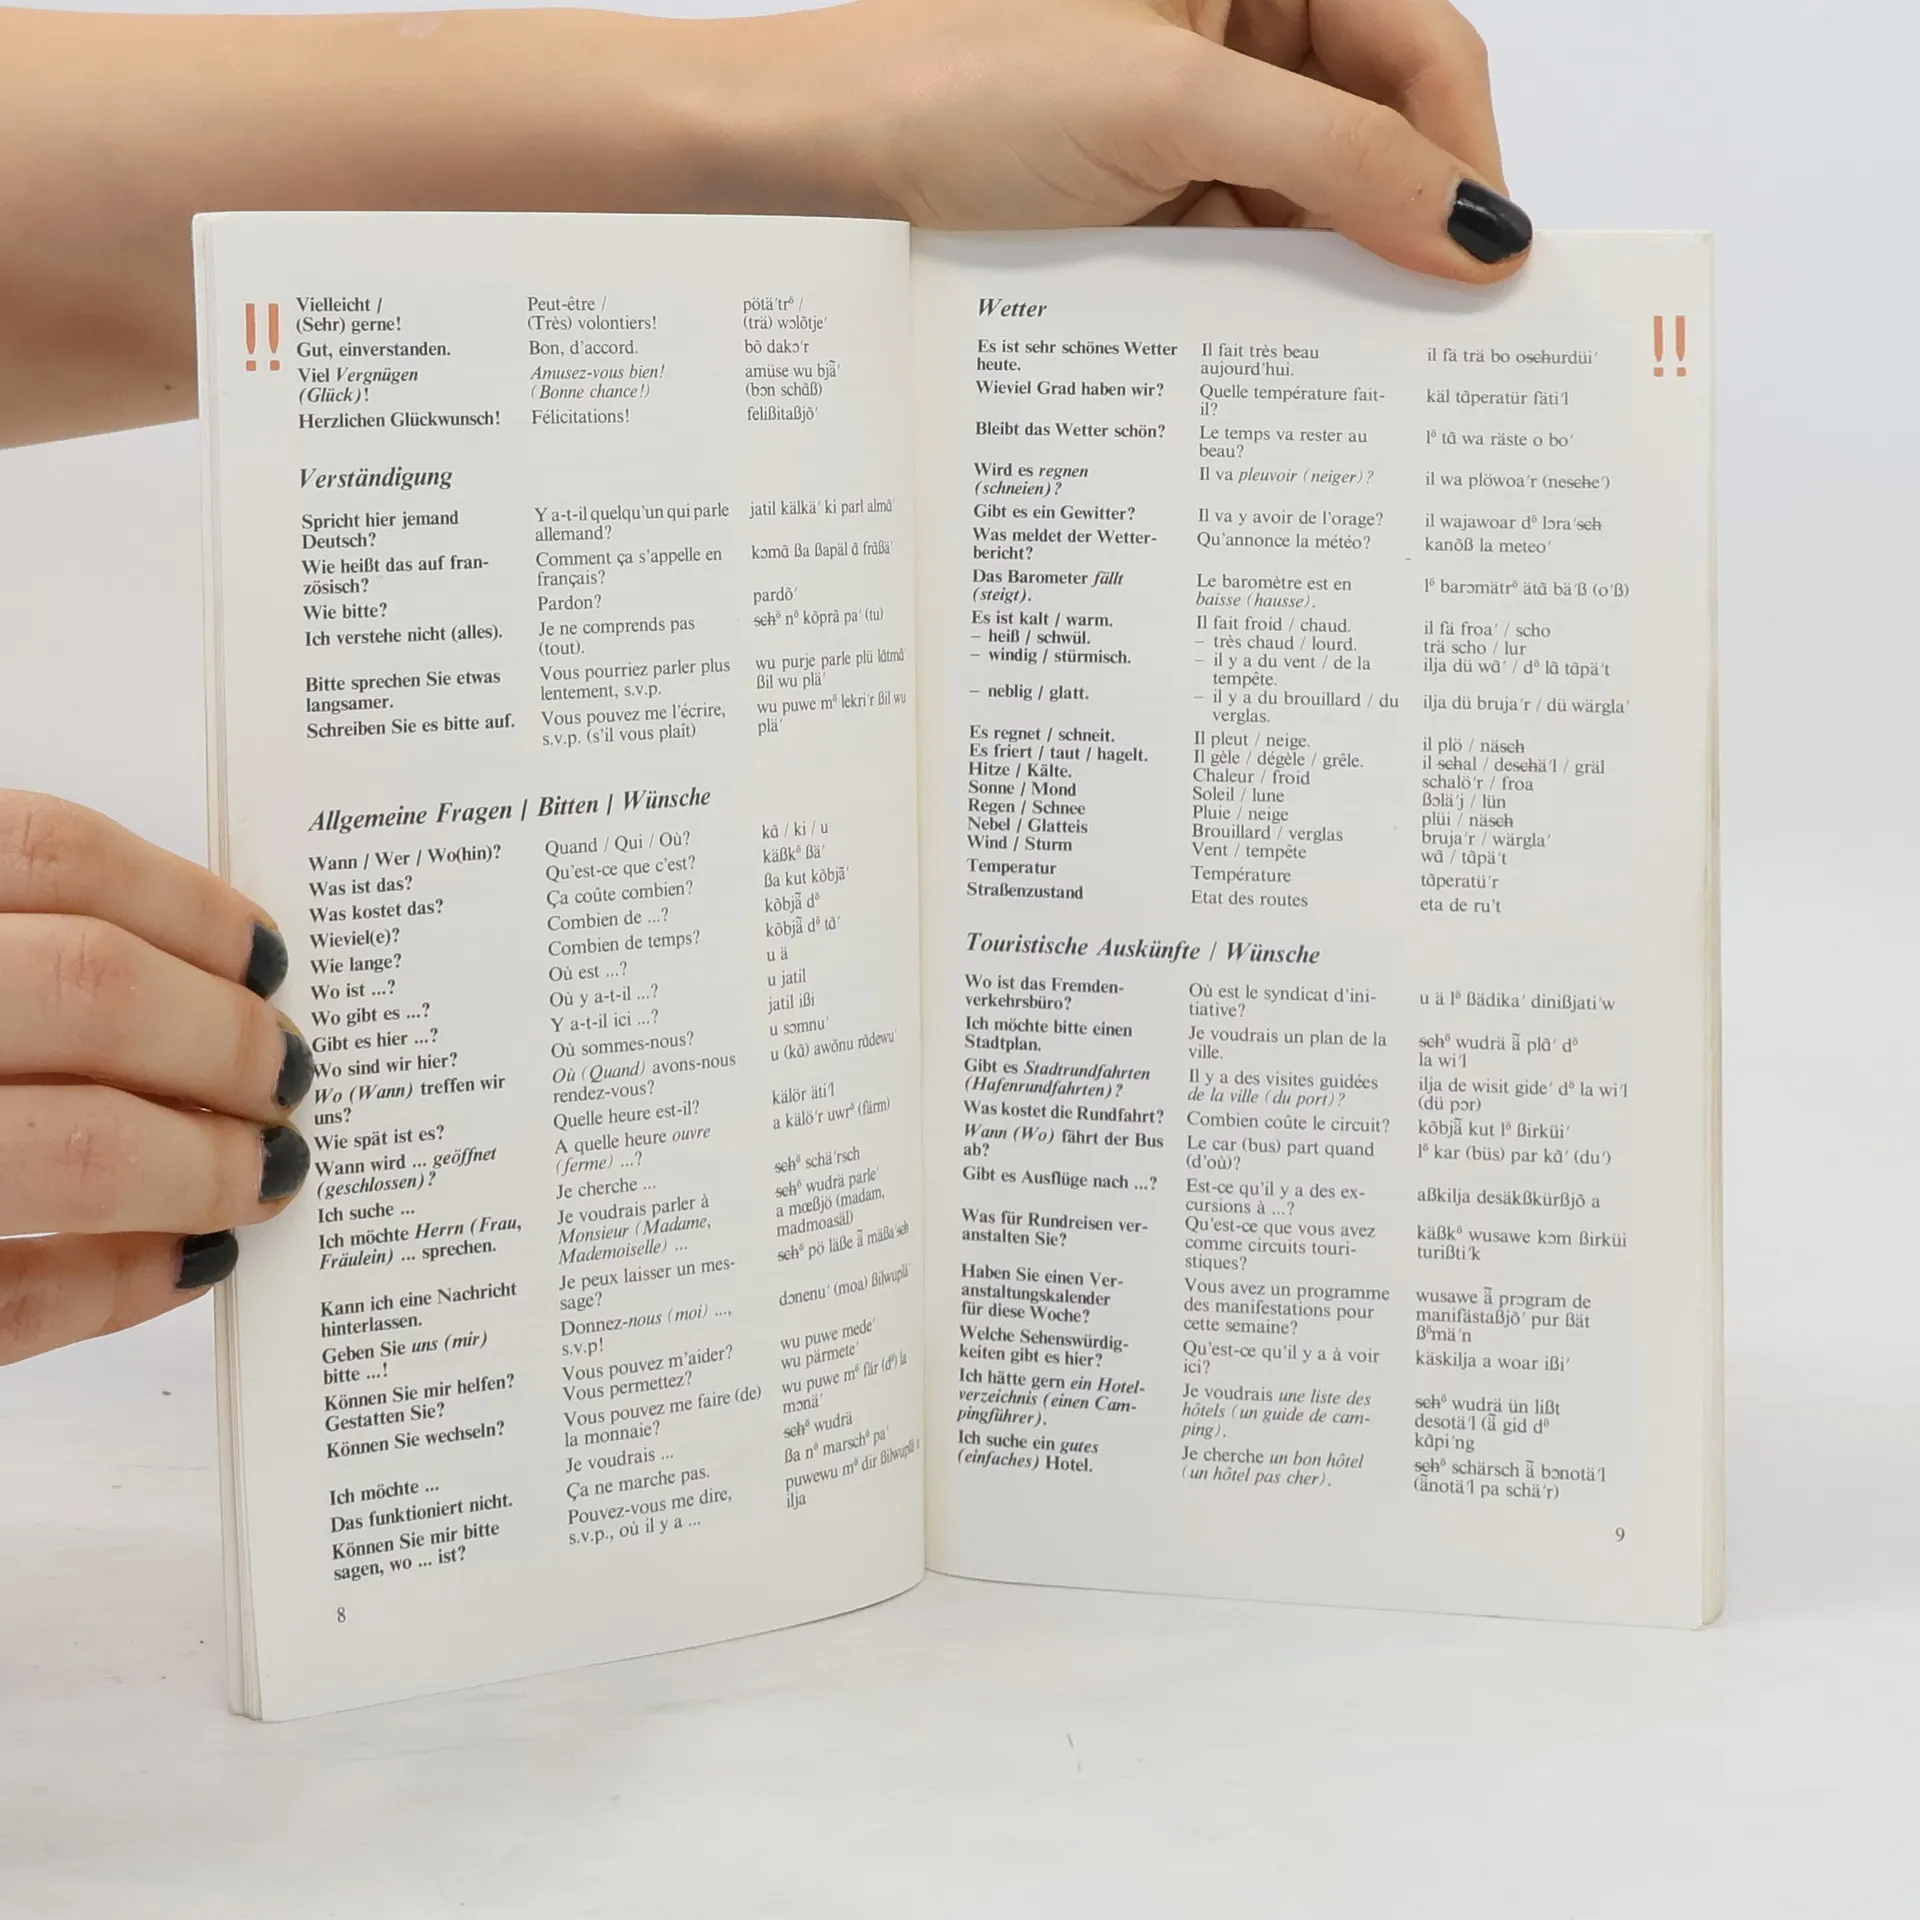 !!
Vielleicht / Peut-être / pötä′trᵒ̈ /
(Sehr) gerne! (Très) volontiers! (trä) wɔlõtje′
Gut, einverstanden. Bon, d'accord. bõ dakɔ′r
Viel Vergnügen Amusez-vous bien! amüse wu bjä̃′
(Glück)! (Bonne chance!) (bɔn schãß)
Herzlichen Glückwunsch! Félicitations! felißitaßjõ′
Verständigung
Spricht hier jemand Y a-t-il quelqu'un qui parle jatil kälkä′ ki parl almã′
Deutsch? allemand?
Wie heißt das auf fran- Comment ça s'appelle en kɔmã ßa ßapäl ã frãßä′
zösisch? français?
Wie bitte? Pardon? pardõ′
Ich verstehe nicht (alles). Je ne comprends pas schᵒ̈ nᵒ̈ kõprã pa′ (tu)
(tout).
Bitte sprechen Sie etwas Vous pourriez parler plus wu purje parle plü lãtmã′
langsamer. lentement, s.v.p. ßil wu plä′
Schreiben Sie es bitte auf. Vous pouvez me l'écrire, wu puwe mᵒ̈ lekri′r ßil wu
s.v.p. (s'il vous plaît) plä′
Allgemeine Fragen / Bitten / Wünsche
Wann / Wer / Wo(hin)? Quand / Qui / Où? kã / ki / u
Was ist das? Qu'est-ce que c'est? käßkᵒ̈ ßä′
Was kostet das? Ça coûte combien? ßa kut kõbjä̃′
Wieviel(e)? Combien de ...? kõbjä̃ dᵒ̈
Wie lange? Combien de temps? kõbjä̃ dᵒ̈ tã′
Wo ist ...? Où est ...? u ä
Wo gibt es ...? Où y a-t-il ...? u jatil
Gibt es hier ...? Y a-t-il ici ...? jatil ißi
Wo sind wir hier? Où sommes-nous? u sɔmnu′
Wo (Wann) treffen wir Où (Quand) avons-nous u (kã) awõnu rãdewu′
uns? rendez-vous?
Wie spät ist es? Quelle heure est-il? kälör äti′l
Wann wird ... geöffnet A quelle heure ouvre a kälö′r uwrᵒ̈ (färm)
(geschlossen)? (ferme) ...?
Ich suche ... Je cherche ... schᵒ̈ schä′rsch
Ich möchte Herrn (Frau, Je voudrais parler à schᵒ̈ wudrä parle′
Fräulein) ... sprechen. Monsieur (Madame, a mœßjö (madam,
Mademoiselle) ... madmoasäl)
Kann ich eine Nachricht Je peux laisser un mes- schᵒ̈ pö läße ä̃ mäßa′sch
hinterlassen. sage?
Geben Sie uns (mir) Donnez-nous (moi) ..., dɔnenu′ (moa) ßilwuplä′
bitte ...! s.v.p!
Können Sie mir helfen? Vous pouvez m'aider? wu puwe mede′
Gestatten Sie? Vous permettez? wu pärmete′
Können Sie wechseln? Vous pouvez me faire (de) wu puwe mᵒ̈ fär (dᵒ̈) la
la monnaie? mɔnä′
Ich möchte ... Je voudrais ... schᵒ̈ wudrä
Das funktioniert nicht. Ça ne marche pas. ßa nᵒ̈ marschᵒ̈ pa′
Können Sie mir bitte Pouvez-vous me dire, puwewu mᵒ̈ dir ßilwuplä u
sagen, wo ... ist? s.v.p., où il y a ... ilja
8
!!
Wetter
Es ist sehr schönes Wetter Il fait très beau il fä trä bo oschurdüi′
heute. aujourd'hui.
Wieviel Grad haben wir? Quelle température fait- käl tãperatür fäti′l
il?
Bleibt das Wetter schön? Le temps va rester au lᵒ̈ tã wa räste o bo′
beau?
Wird es regnen Il va pleuvoir (neiger)? il wa plöwoa′r (nesche′)
(schneien)?
Gibt es ein Gewitter? Il va y avoir de l'orage? il wajawoar dᵒ̈ lɔra′sch
Was meldet der Wetter- Qu'annonce la météo? kanõß la meteo′
bericht?
Das Barometer fällt Le baromètre est en lᵒ̈ barɔmätrᵒ̈ ätã bä′ß (o′ß)
(steigt). baisse (hausse).
Es ist kalt / warm. Il fait froid / chaud. il fä froa′ / scho
– heiß / schwül. – très chaud / lourd. trä scho / lur
– windig / stürmisch. – il y a du vent / de la ilja dü wã′ / dᵒ̈ lã tãpä′t
tempête.
– neblig / glatt. – il y a du brouillard / du ilja dü bruja′r / dü wärgla′
verglas.
Es regnet / schneit. Il pleut / neige. il plö / näsch
Es friert / taut / hagelt. Il gèle / dégèle / grêle. il schal / deschä′l / gräl
Hitze / Kälte. Chaleur / froid schalö′r / froa
Sonne / Mond Soleil / lune ßɔlä′j / lün
Regen / Schnee Pluie / neige plüi / näsch
Nebel / Glatteis Brouillard / verglas bruja′r / wärgla′
Wind / Sturm Vent / tempête wã / tãpä′t
Temperatur Température tãperatü′r
Straßenzustand Etat des routes eta de ru′t
Touristische Auskünfte / Wünsche
Wo ist das Fremden- Où est le syndicat d'ini- u ä lᵒ̈ ßädika′ dinißjati′w
verkehrsbüro? tiative?
Ich möchte bitte einen Je voudrais un plan de la schᵒ̈ wudrä ä̃ plã′ dᵒ̈
Stadtplan. ville. la wi′l
Gibt es Stadtrundfahrten Il y a des visites guidées ilja de wisit gide′ dᵒ̈ la wi′l
(Hafenrundfahrten)? de la ville (du port)? (dü pɔr)
Was kostet die Rundfahrt? Combien coûte le circuit? kõbjä̃ kut lᵒ̈ ßirküi′
Wann (Wo) fährt der Bus Le car (bus) part quand lᵒ̈ kar (büs) par kã′ (du′)
ab? (d'où)?
Gibt es Ausflüge nach ...? Est-ce qu'il y a des ex- aßkilja desäkßkürßjõ a
cursions à ...?
Was für Rundreisen ver- Qu'est-ce que vous avez käßkᵒ̈ wusawe kɔm ßirküi
anstalten Sie? comme circuits touri- turißti′k
stiques?
Haben Sie einen Ver- Vous avez un programme wusawe ä̃ prɔgram de
anstaltungskalender des manifestations pour manifästaßjõ′ pur ßät
für diese Woche? cette semaine? ßᵒ̈mä′n
Welche Sehenswürdig- Qu'est-ce qu'il y a à voir käskilja a woar ißi′
keiten gibt es hier? ici?
Ich hätte gern ein Hotel- Je voudrais une liste des schᵒ̈ wudrä ün lißt
verzeichnis (einen Cam- hôtels (un guide de cam- desotä′l (ä̃ gid dᵒ̈
pingführer). ping). kãpi′ng
Ich suche ein gutes Je cherche un bon hôtel schᵒ̈ schärsch ä̃ bɔnotä′l
(einfaches) Hotel. (un hôtel pas cher). (ä̃notä′l pa schä′r)
9